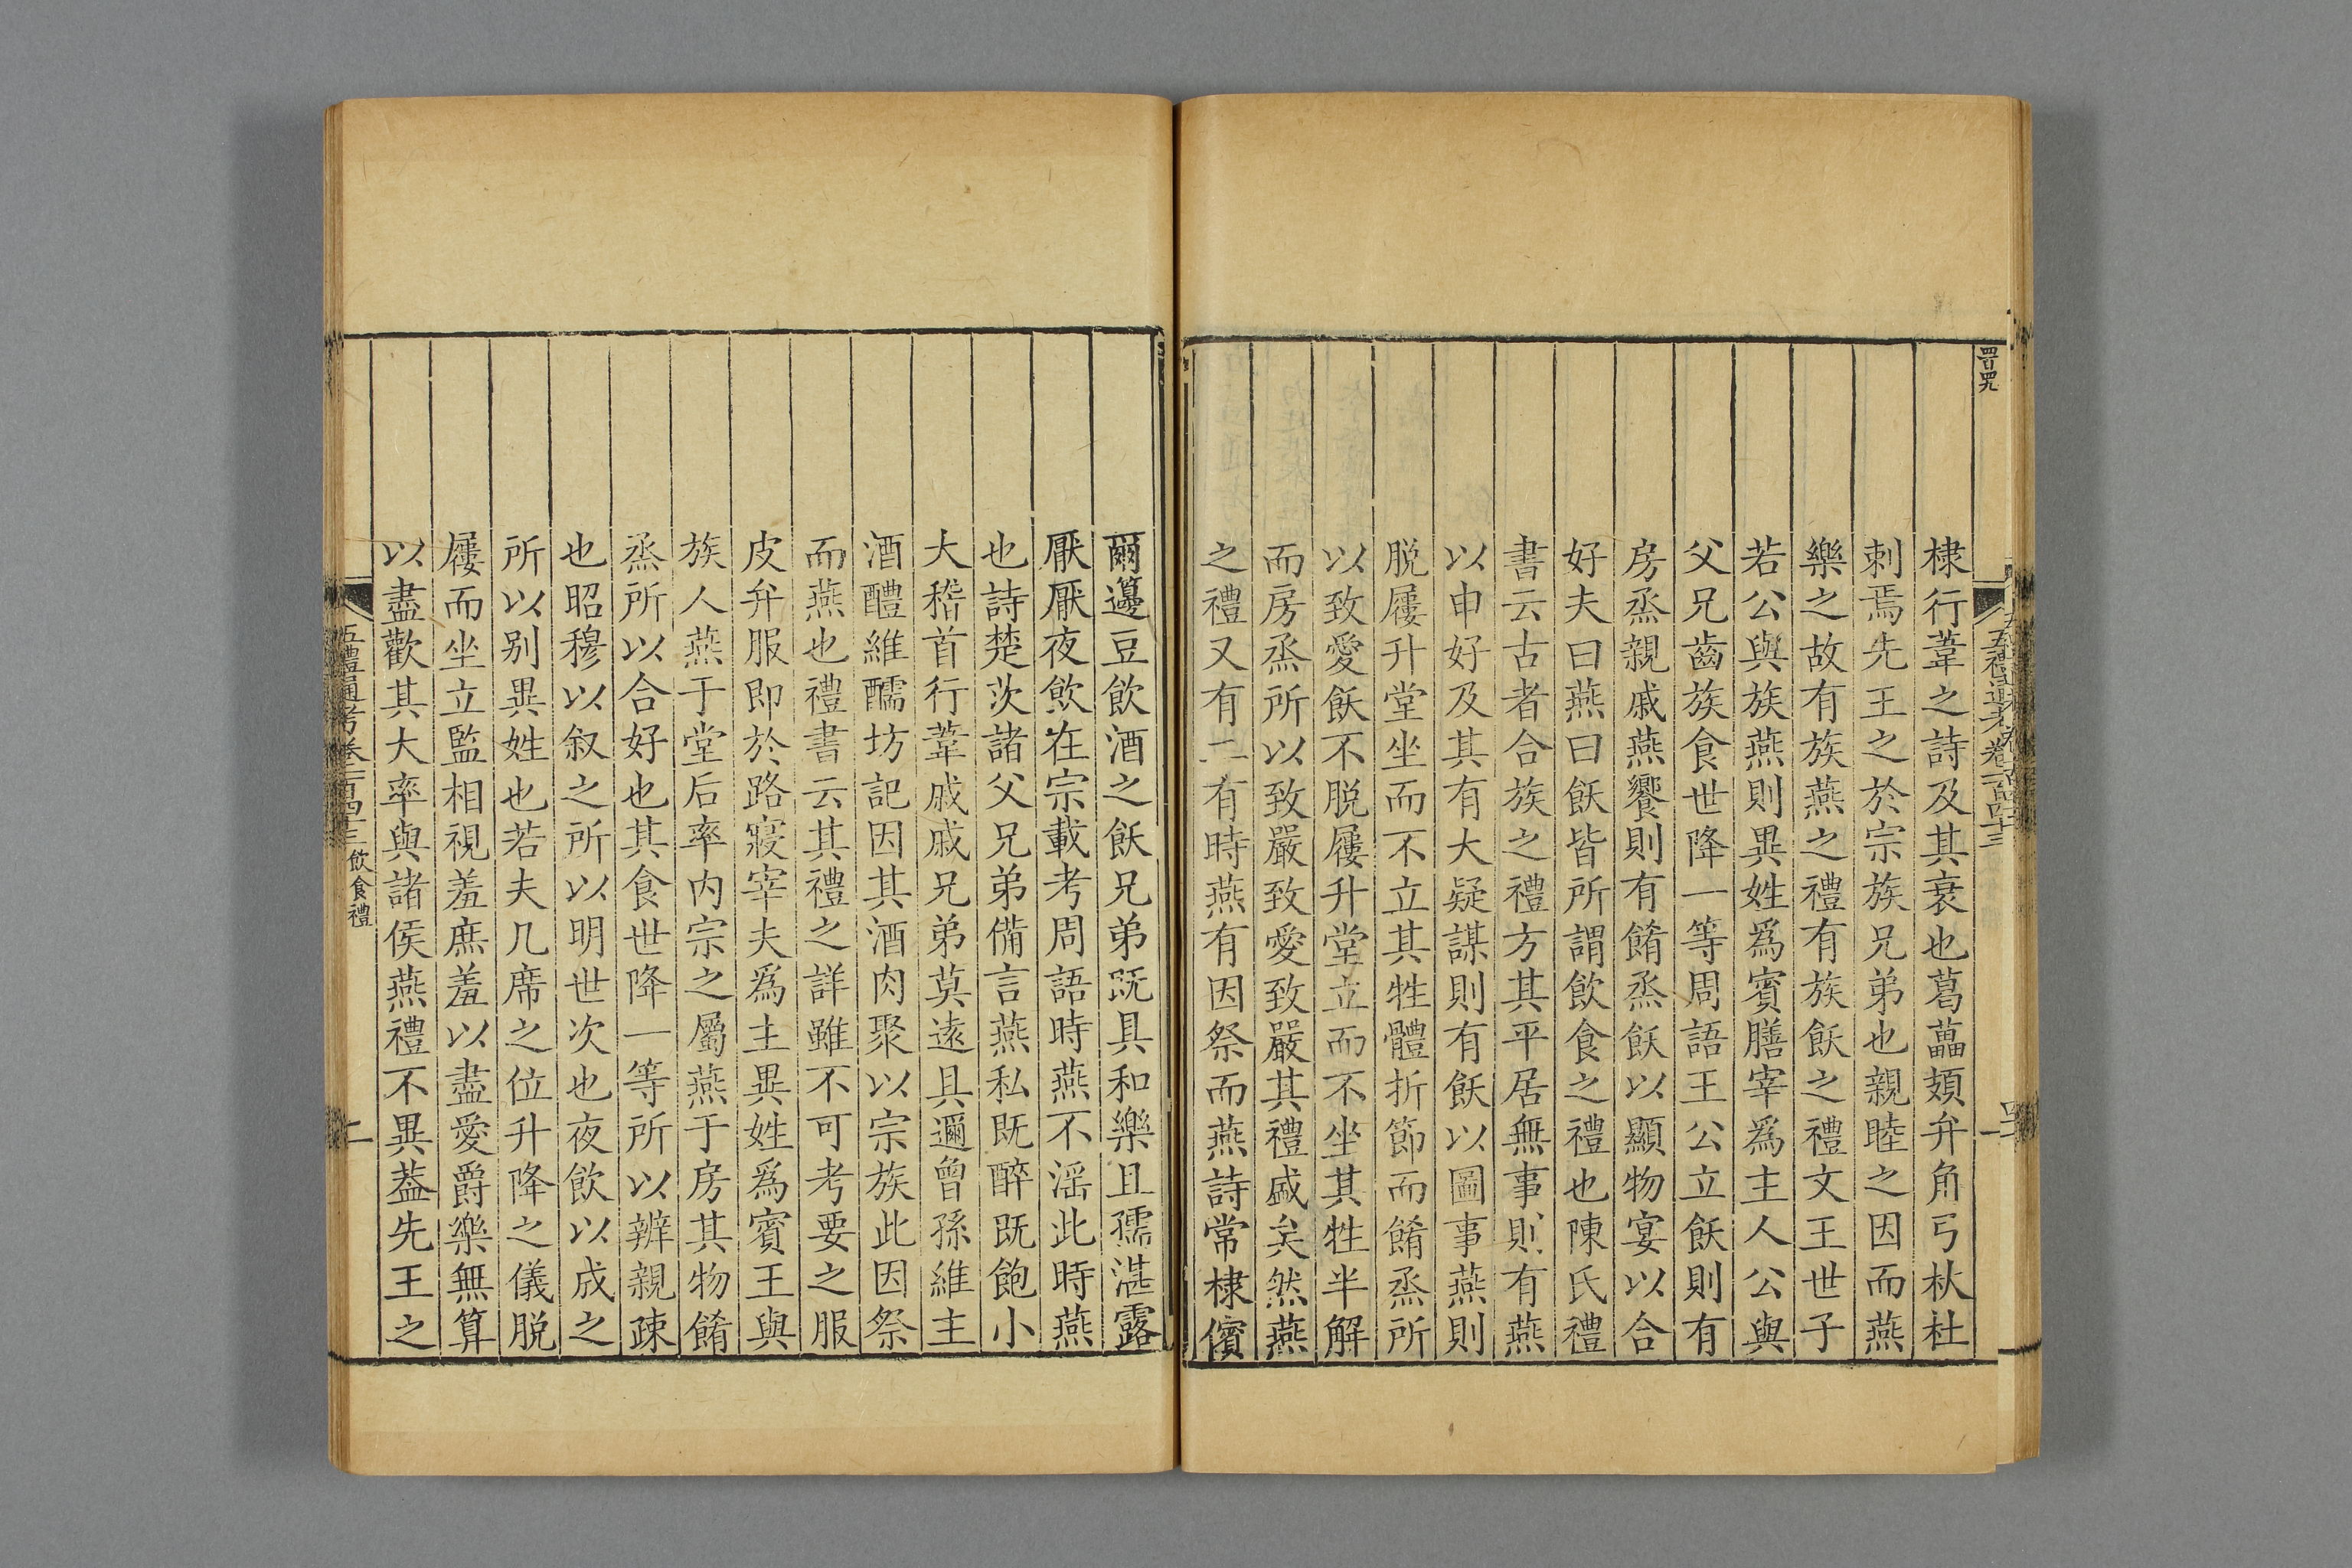 棣行葦之詩及其衰也葛藟頍弁角弓杕杜
刺焉先王之於宗族兄弟也親睦之因而燕
樂之故有族燕之禮有族飫之禮文王世子
若公與族燕則異姓爲賓膳宰爲主人公與
父兄齒族食世降一等周語王公立飫則有
房烝親戚燕饗則有餚烝飫以顯物宴以合
好夫曰燕曰飫皆所謂飲食之禮也陳氏禮
書云古者合族之禮方其平居無事則有燕
以申好及其有大疑謀則有飫以圖事燕則
脱屨升堂坐而不立其牲體折節而餚烝所
以致愛飫不脱屨升堂立而不坐其牲半解
而房烝所以致嚴致愛致嚴其禮戚矣然燕
之禮又有二有時燕有因祭而燕詩常棣儐
爾籩豆飲酒之飫兄弟既具和樂且孺湛露
厭厭夜飲在宗載考周語時燕不淫此時燕
也詩楚茨諸父兄弟備言燕私既醉既飽小
大稽首行葦戚戚兄弟莫遠具邇曾孫維主
酒醴維醹坊記因其酒肉聚以宗族此因祭
而燕也禮書云其禮之詳雖不可考要之服
皮弁服即於路寢宰夫爲主異姓爲賓王與
族人燕于堂后率内宗之屬燕于房其物餚
烝所以合好也其食世降一等所以辨親疎
也昭穆以叙之所以明世次也夜飲以成之
所以别異姓也若夫几席之位升降之儀脱
屨而坐立監相視羞庶羞以盡愛爵樂無算
以盡歡其大率與諸侯燕禮不異葢先王之
五禮通考卷二百四十三 飲食禮
二